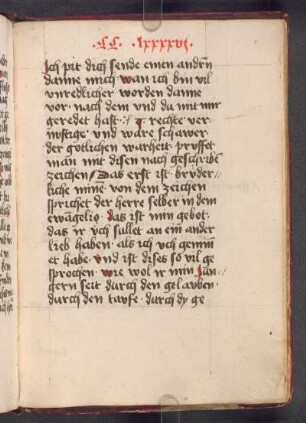 ·CC· lxxxxvi·
Ich pit dich sende einen andrn
danne mich wan ich bin vil
unredlicher worden danne
vor · nach dem und du mit mir
geredet hast ·:· rechte ver
nuftige und ware schawer
der gotlichen warheit pruffet
man mit disen nach geschribē
zeichen / Das erst ist · bruder
liche mine von dem zeichen
sprichet der herre selber in dem
ewāgelio · das ist min gebot ·
das ir vch sullet an ein ander
lieb haben · als ich vch geminn
et habe · und ist dises so vil ge
sprochen · wie wol ir min Jun
gern seit durch den gelauben ·
durch den taufe · durch dy ge